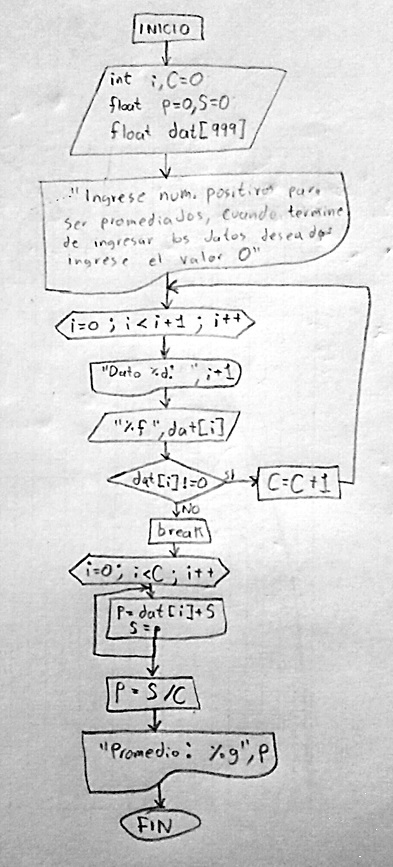 INICIO
int i, C=0
float p=0, S=0
float dat[999]
"Ingrese num. positivos para
ser promediados, cuando termine
de ingresar los datos deseados
ingrese el valor 0"
i=0 ; i<i+1 ; i++
"Dato %d: ", i+1
"%f", dat[i]
dat[i]!=0
SI
C=C+1
NO
break
i=0; i<C; i++
P=dat[i]+S
S=P
P=S/C
"Promedio: %g", P
FIN